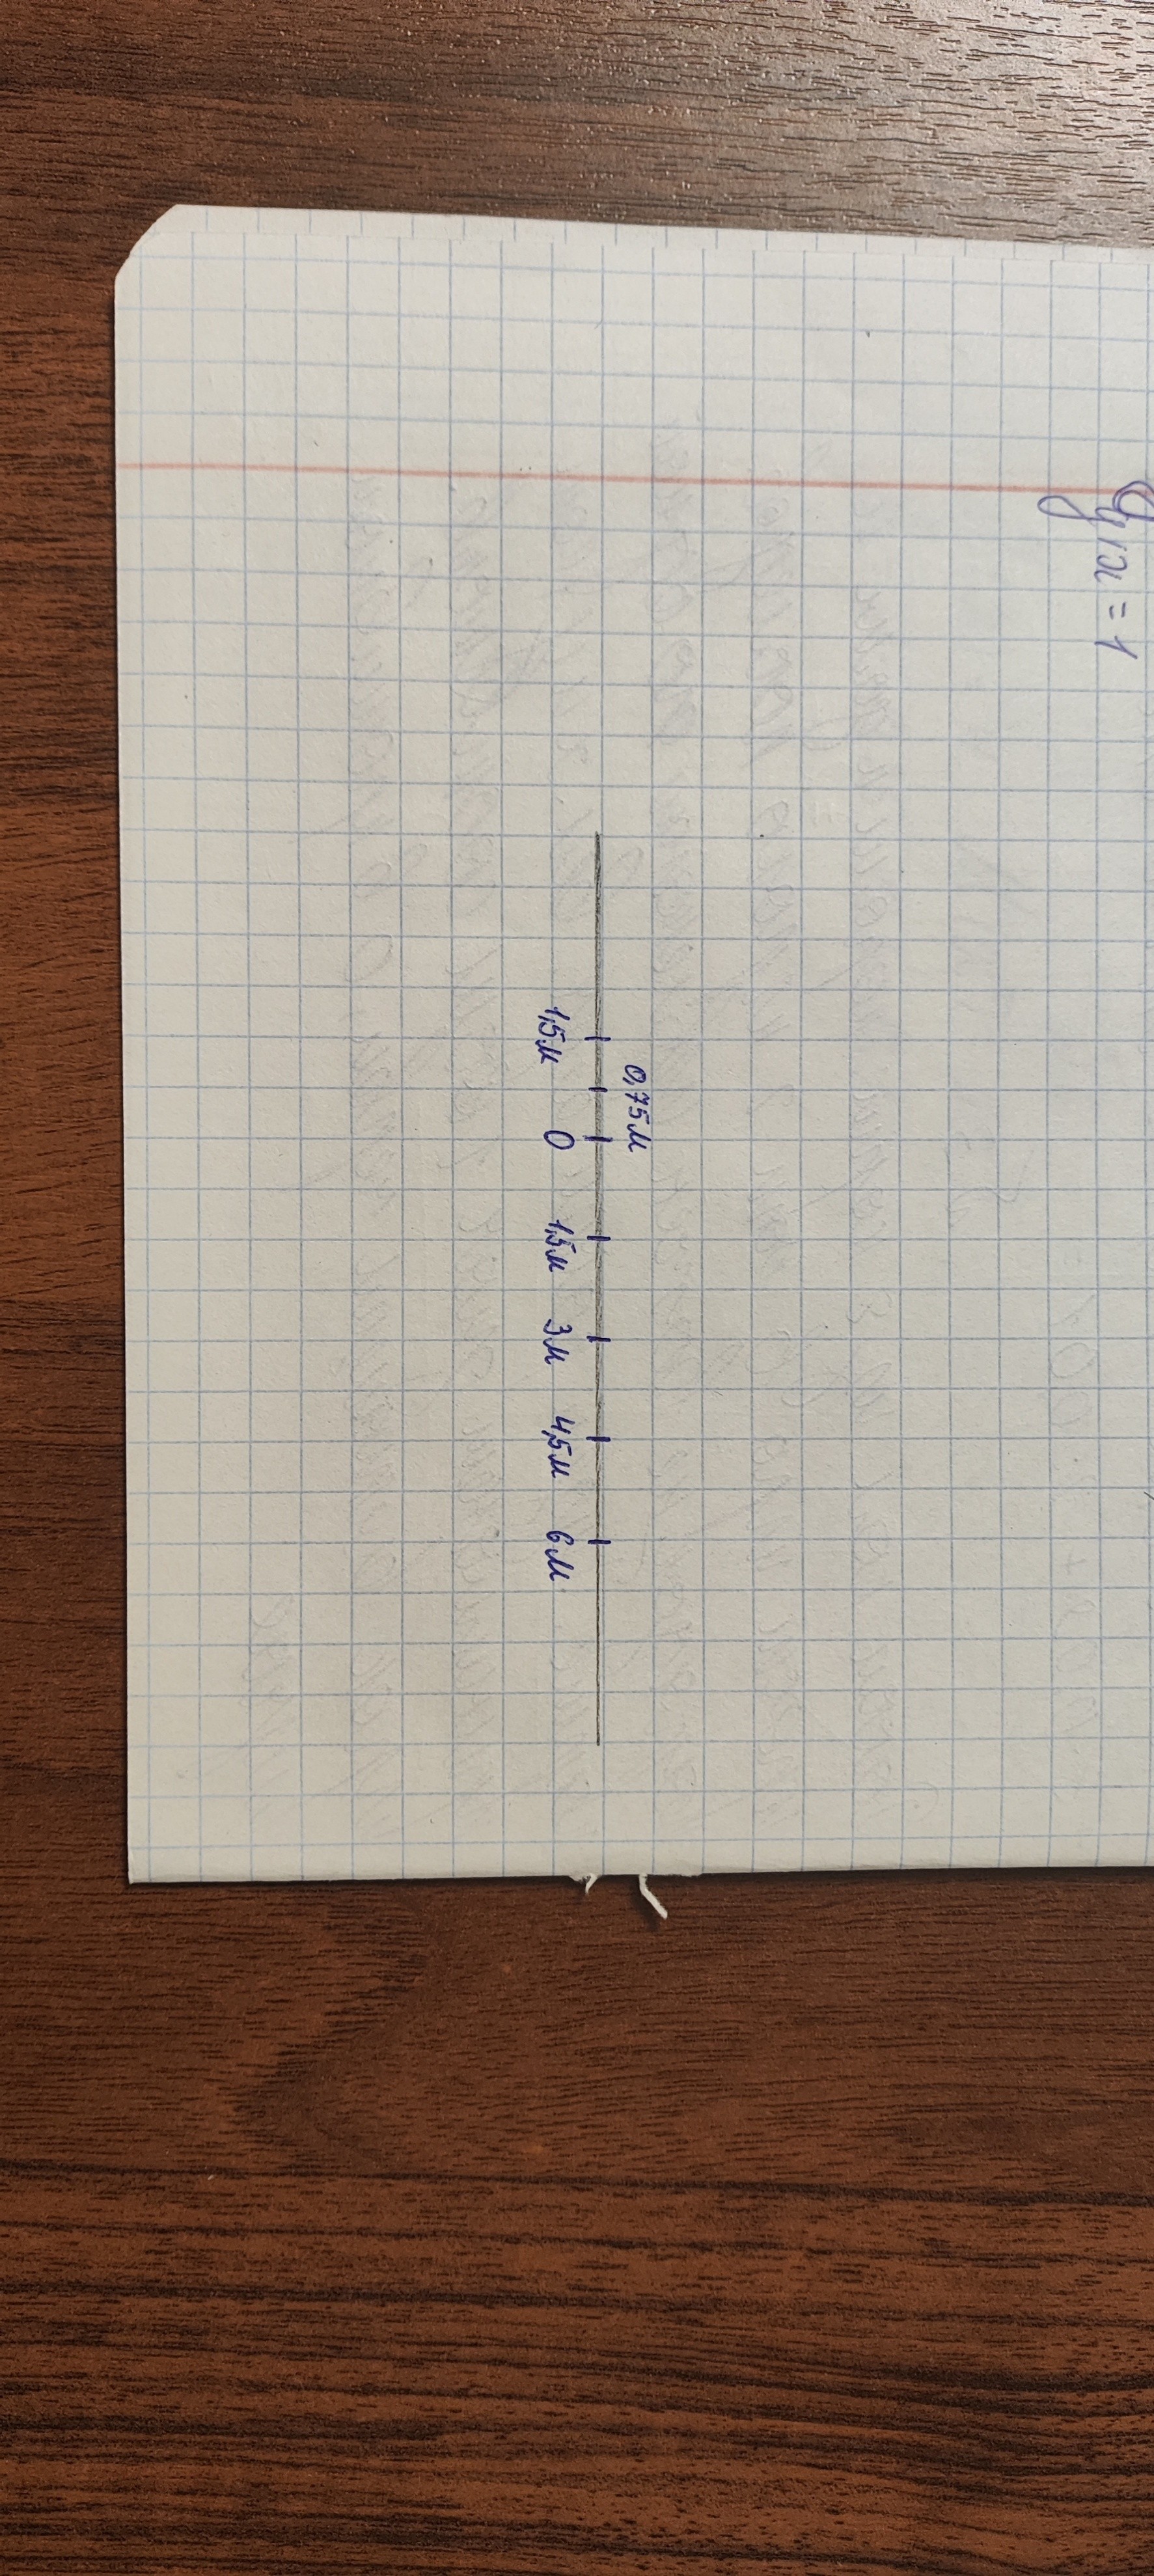 = 1
0,75м
1,5м 0 1,5м 3м 4,5м 6м